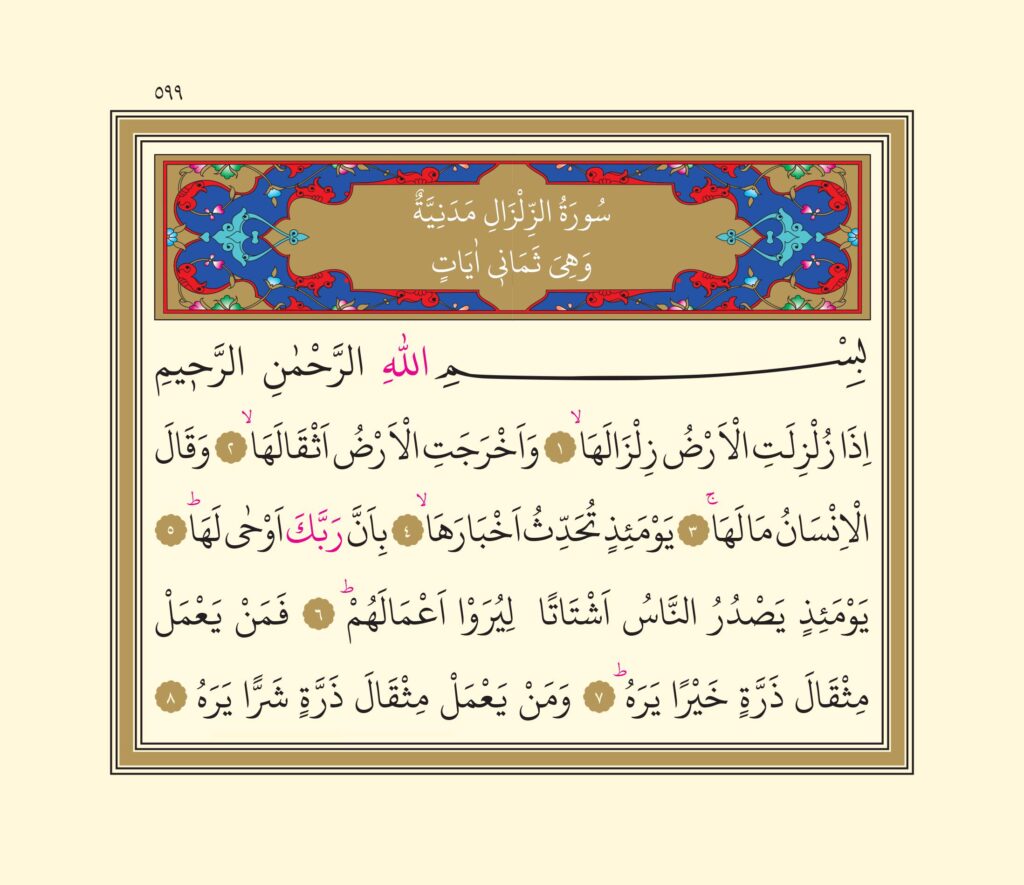 ٥٩٩
سُورَةُ الزِّلْزَالِ مَدَنِيَّةٌ
وَهِىَ ثَمَانِى اٰيَاتٍ
بِسْــــــــــــمِ اللّٰهِ الرَّحْمٰنِ الرَّح۪يمِ
اِذَا زُلْزِلَتِ الْاَرْضُ زِلْزَالَهَاۙ ﴿١﴾ وَاَخْرَجَتِ الْاَرْضُ اَثْقَالَهَاۙ ﴿٢﴾ وَقَالَ
الْاِنْسَانُ مَالَهَاۚ ﴿٣﴾ يَوْمَئِذٍ تُحَدِّثُ اَخْبَارَهَاۙ ﴿٤﴾ بِاَنَّ رَبَّكَ اَوْحٰى لَهَاۜ ﴿٥﴾
يَوْمَئِذٍ يَصْدُرُ النَّاسُ اَشْتَاتًا لِيُرَوْا اَعْمَالَهُمْۜ ﴿٦﴾ فَمَنْ يَعْمَلْ
مِثْقَالَ ذَرَّةٍ خَيْرًا يَرَهُۜ ﴿٧﴾ وَمَنْ يَعْمَلْ مِثْقَالَ ذَرَّةٍ شَرًّا يَرَهُ ﴿٨﴾